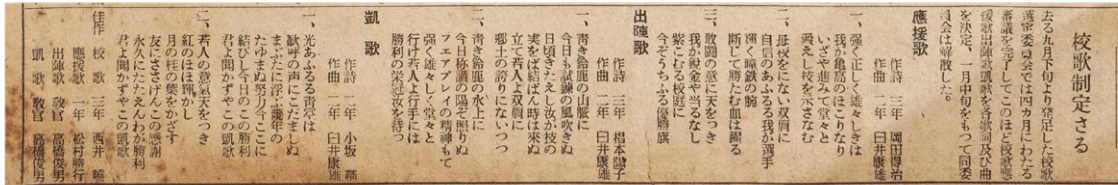 校歌制定さる
去る九月下旬より発足した校歌
選定委員会では四ヵ月にわたる
審議を完了してこのほど校歌應
援歌出陣歌凱歌を各歌詞及び曲
を決定、一月中旬をもつて同委
員会は解散した。
應援歌
作詩 三年 岡田得治
作曲 二年 臼井康雄
一、強く正しく雄々しきは
我が亀高のほこりなり
いざや進みて堂々と
選れし枝を示さなむ
二、母校をにない双肩に
自信のあふる我が選手
速く瞳鉄の腕
断じて勝たむ血は躍る
三、敢闘の意に天をつき
我が祝金や当るなし
紫こむる校庭に
今ぞうちふる優勝旗
出陣歌
作詩 三年 椙本陽子
作曲 二年 臼井康雄
一、青き鈴鹿の山脈に
今日も試練の風吹きぬ
日頃きたえし汝が技の
実をば結ばん時は来ぬ
立て若人よ双肩に
郷土の誇りにないつつ
二、青き鈴鹿の水上に
今日称讃の陽ぞ照りぬ
フェアプレイの精神もて
強く雄々しく堂々と
行け若人よ行手には
勝利の栄冠汝を待つ
凱歌
作詩 二年 小坂
作曲 二年 臼井康雄
一、光あふるる青空は
歓呼の声にこだましぬ
まぶたに浮ぶ幾年の
たゆまぬ努力今ここに
結びし今日のこの勝利
君よ聞かずやこの凱歌
二、若人の意気天をつき
紅のほほ輝かし
月の桂の葉をかざす
友にささげんこの感謝
永久にたたえんわが勝利
君よ聞かずやこの凱歌
佳作 校歌 三年 西井
應援歌 一年 松村勝行
出陣歌 教官 高橋俊男
凱歌 教官 高橋俊男